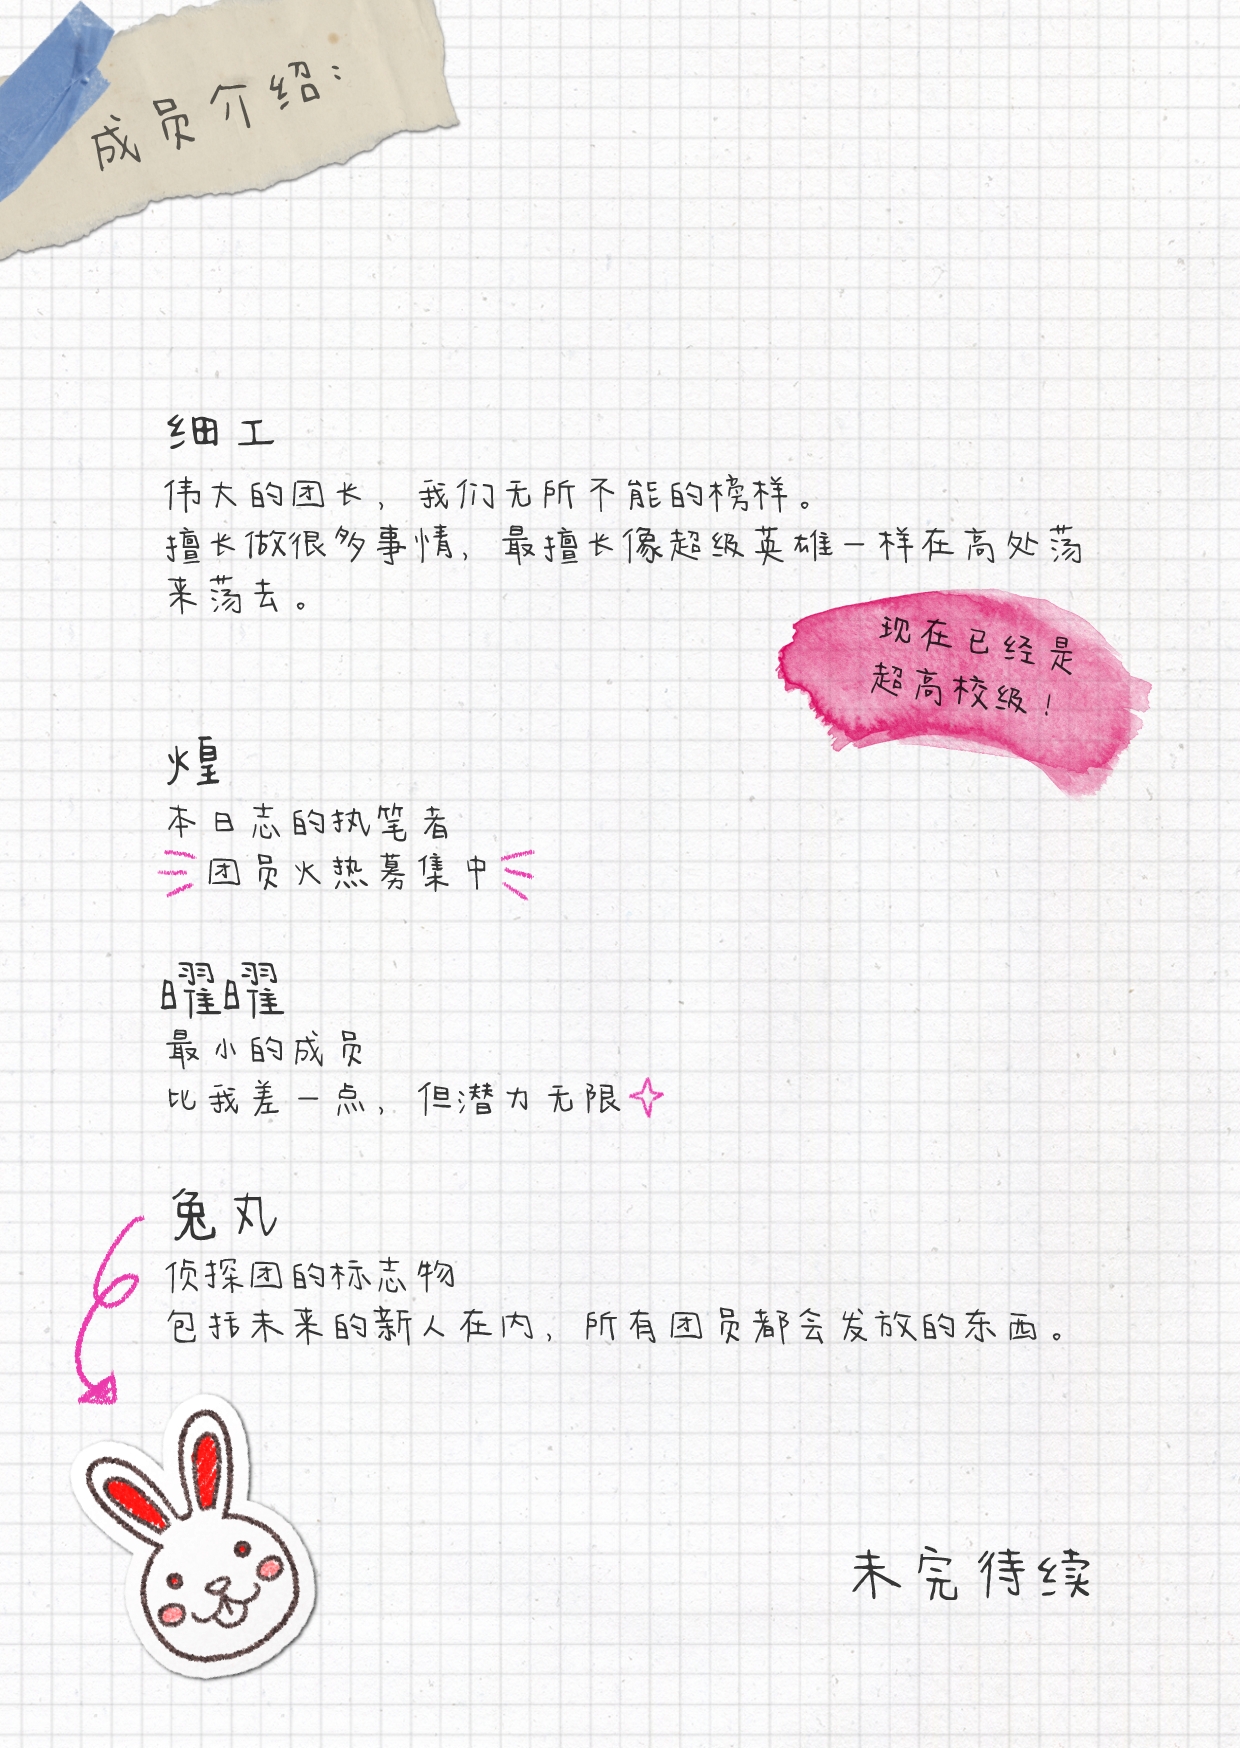 成员介绍：
细工
伟大的团长，我们无所不能的榜样。
擅长做很多事情，最擅长像超级英雄一样在高处荡
来荡去。
现在已经是
超高校级！
煌
本日志的执笔者
团员火热募集中
曜曜
最小的成员
比我差一点，但潜力无限
兔丸
侦探团的标志物
包括未来的新人在内，所有团员都会发放的东西。
未完待续